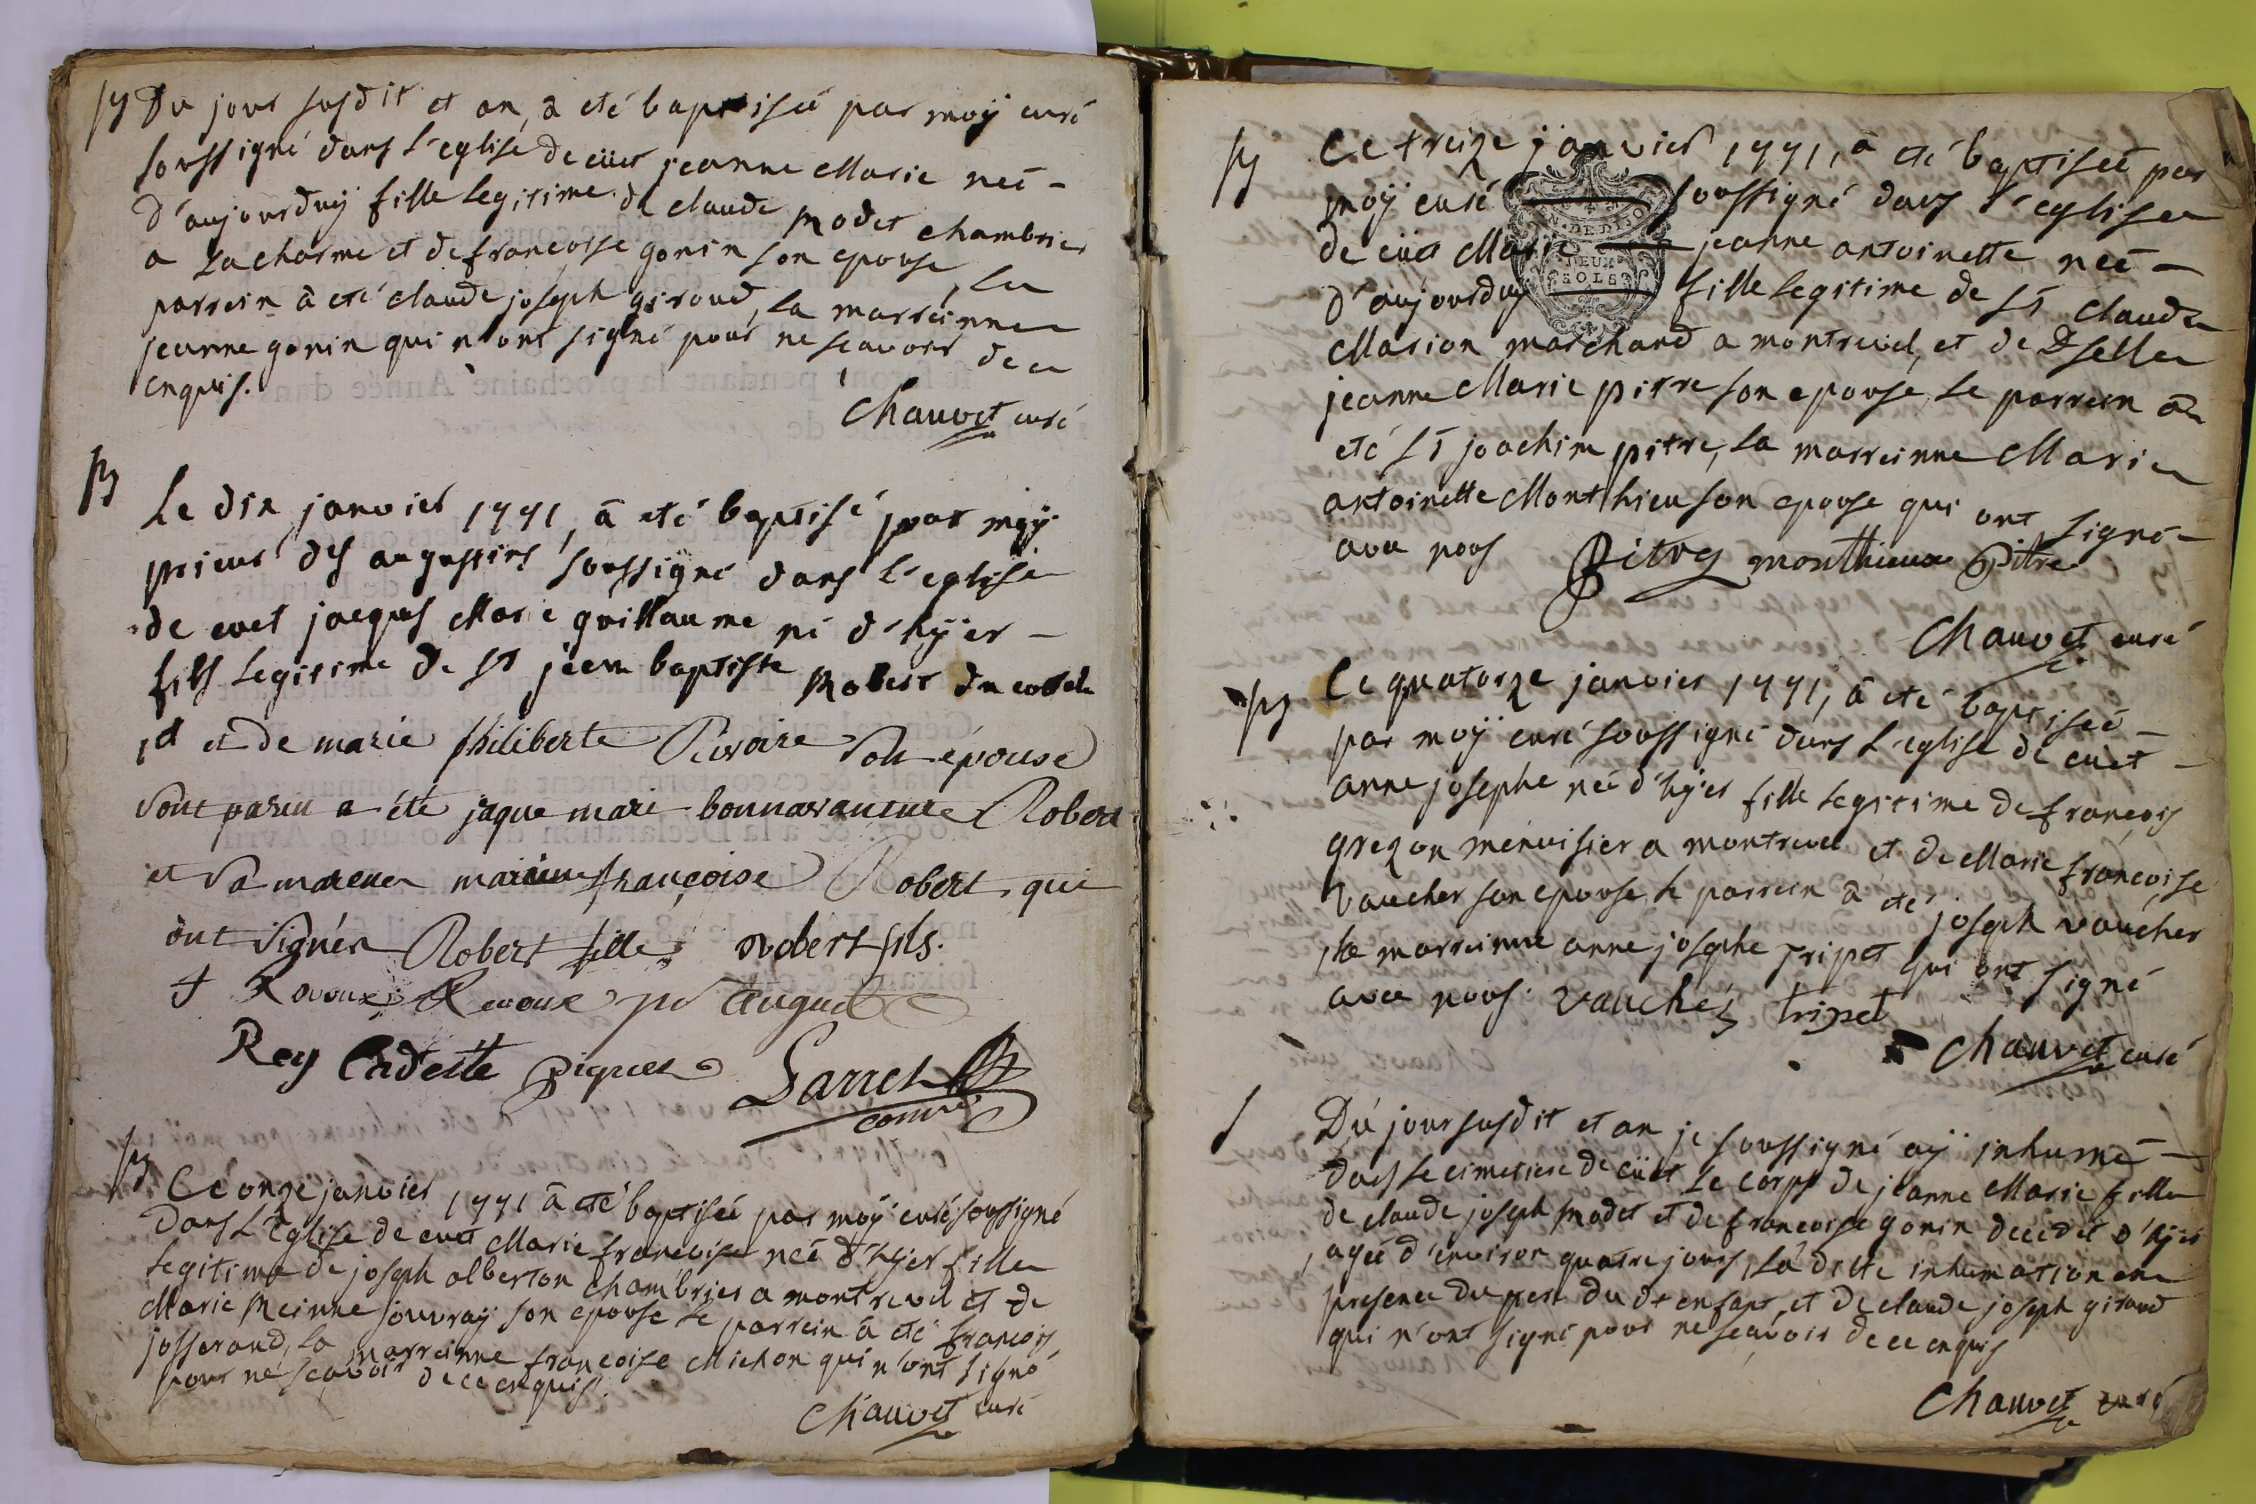 Du jour susdit et an, a eté baptiseé par moÿ curé
soussigné dans l'eglise de cüet jeanne Marie neé -
d'aujourduÿ fille legitime de claude Modet chambrier
a La charme et de francoise gonin son epouse, Le
parrein â eté claude joseph giroud, la marreinne
jeanne gonin qui n'ont signé pour ne scavoir de ce
enquis.
Chauvet curé
Le dix janvier 1771, â eté baptisé par moÿ
prieur des augustins soussigné dans l'eglise
de cuet jacques Marie guillaume né d'hÿer -
fils legitime de sr jean baptiste Robert
et de marie philiberte Rivoire Son épouse
Sont parein a été jaque marie bonnavanture Robert
et Sa mareine marie françoise Robert qui
ont Signés Robert fille robert fils.
Revoux
Rey Cadette Piquet Larret
Ce onze janvier 1771 â eté baptiseé par moÿ curé soussigné
dans L'Eglise de cuet Marie francoise neé d'hÿer fille
legitime de joseph alberton chambrier a montrevel et de
Marie Meinne jouvraÿ son epouse le parrein â eté francois
josserand, la marreinne francoise Michon qui n'ont signé
pour ne scavoir de ce enquis.
Chauvet curé
Ce treize janvier 1771, â eté baptiseé par
moÿ curé soussigné dans l'eglise
DEUX
SOLS
de cüet Marie jeanne antoinette neé -
d'aujourduÿ fille legitime de sr claude
Marion marchand a montrevel, et de Dselle
jeanne Marie pitre son epouse, Le parrein a
eté sr joachim pitre, La marreinne Marie
antoinette Monthieu son epouse qui ont signé -
avec nous Pitre monthieux Pitre
Chauvet curé
Ce quatorze janvier 1771, â eté baptiseé
par moÿ curé soussigné dans l'eglise de cuet -
anne josephe neé d'hÿer fille legitime de francois
grezon menuisier a montrevel et de Marie francoise
vaucher son epouse le parrein â eté joseph vaucher
la marreinne anne josephe Tripet qui ont signé
avec nous. vauché tripet
Chauvet curé
Du jour susdit et an je soussigné aÿ inhumé -
dans le cimetiere de cüet Le corps de jeanne Marie fille
de claude joseph Modet et de francoise gonin décédeé d'hÿer
ageé d'environ quatre jours, La ditte inhumation en
presence du pere du dt enfant, et de claude joseph giroud
qui n'ont signé pour ne scavoir de ce enquis
Chauvet curé